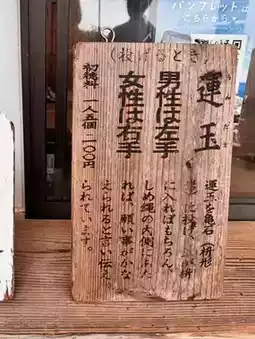 パンフレットは
こちらから
運玉
うんだま
(投げるとき)
男性は左手
女性は右手
初穂料 一人五個 二〇〇円
運玉を亀石(桝形
に入ればもちろん、
しめ縄の内側にあた
れば、願い事がかな
えられると言い伝え
られています。